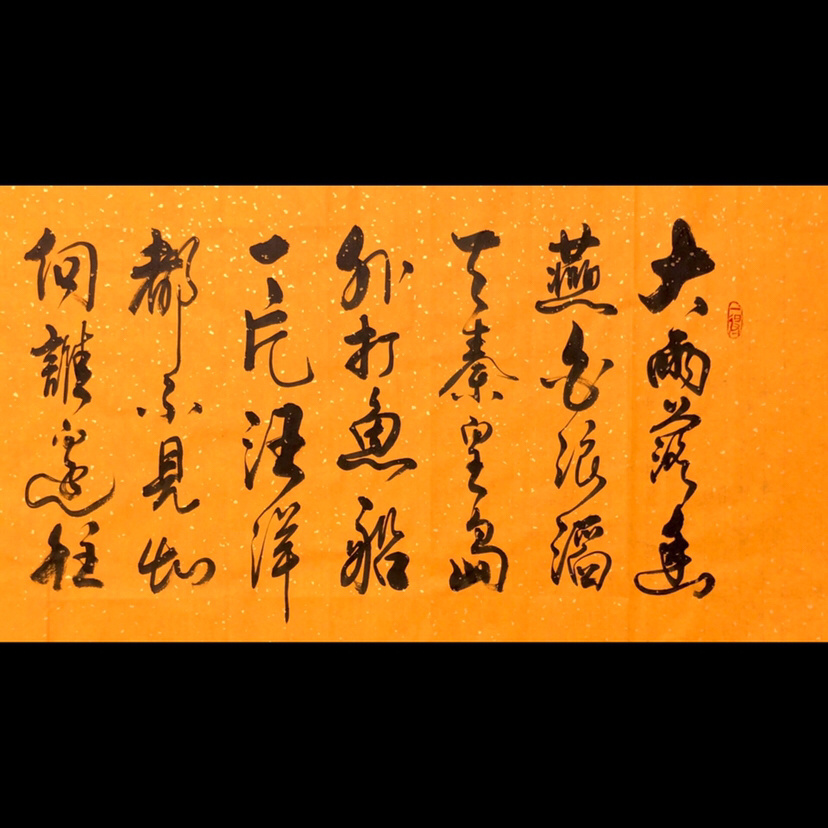 大雨落幽
燕白浪滔
天秦皇島
外打魚船
一片汪洋
都不見知
向誰邊往